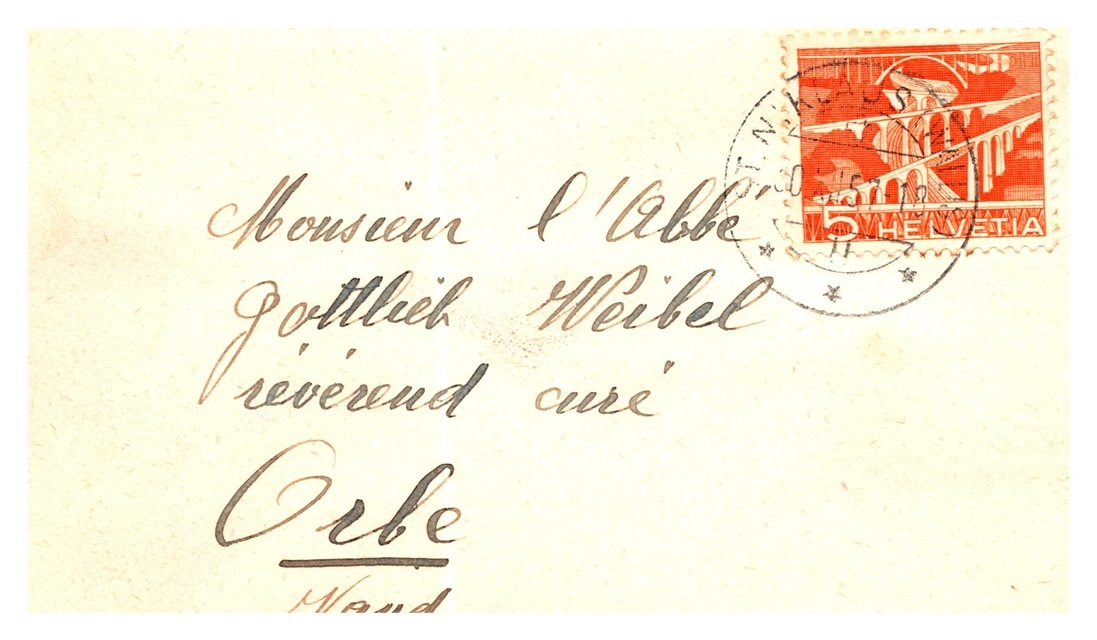 ST. NIKLAUS
5 HELVETIA
Monsieur l'Abbé
Gottlieb Weibel
révérend curé
Orbe
Vaud